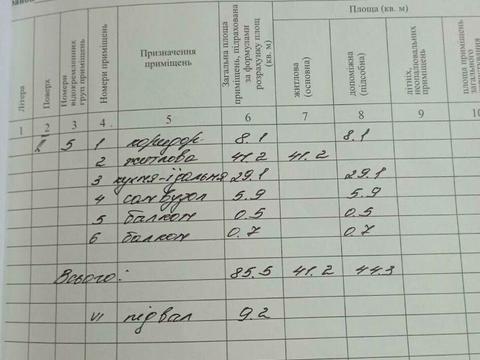 Площа (кв. м)
Літера
Поверх
Номери відокремлених груп приміщень
Номери приміщень
Призначення приміщень
Загальна площа приміщень, підрахована за формулами розрахунку площ (кв. м)
житлова (основна)
допоміжна (підсобна)
літніх, неопалювальних приміщень
площа приміщень загального
1 2 3 4 5 6 7 8 9 10
5 1 коридор 8.1 8.1
2 житлова 41.2 41.2
3 кухня-їдальня 29.1 29.1
4 сан вузол 5.9 5.9
5 балкон 0.5 0.5
6 балкон 0.7 0.7
Всього: 85.5 41.2 44.3
VI підвал 9.2